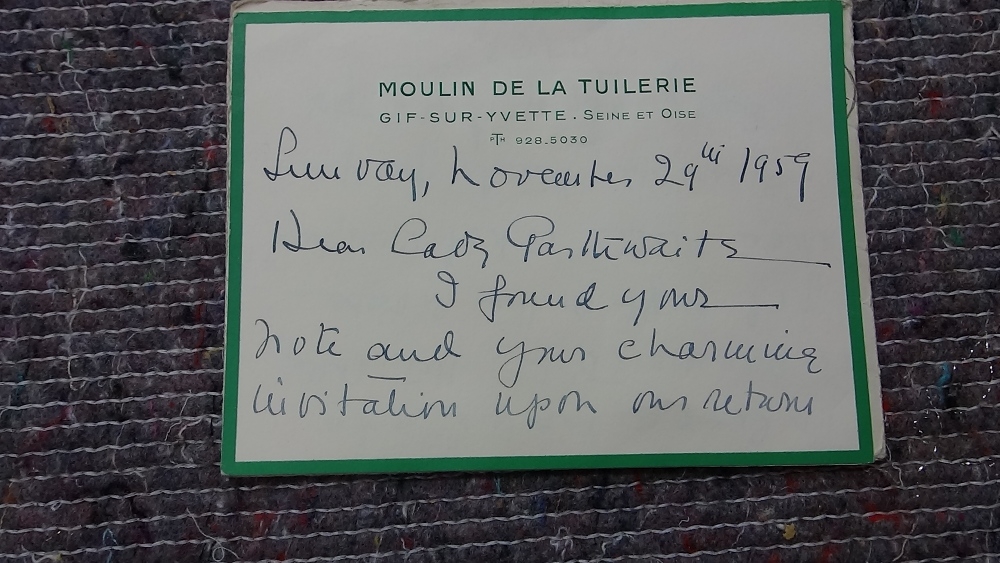 MOULIN DE LA TUILERIE
GIF-SUR-YVETTE. SEINE ET OISE
PTH 928.5030
Sunday, November 29th 1959
Dear Lady
I found your
note and your charming
invitation upon our return